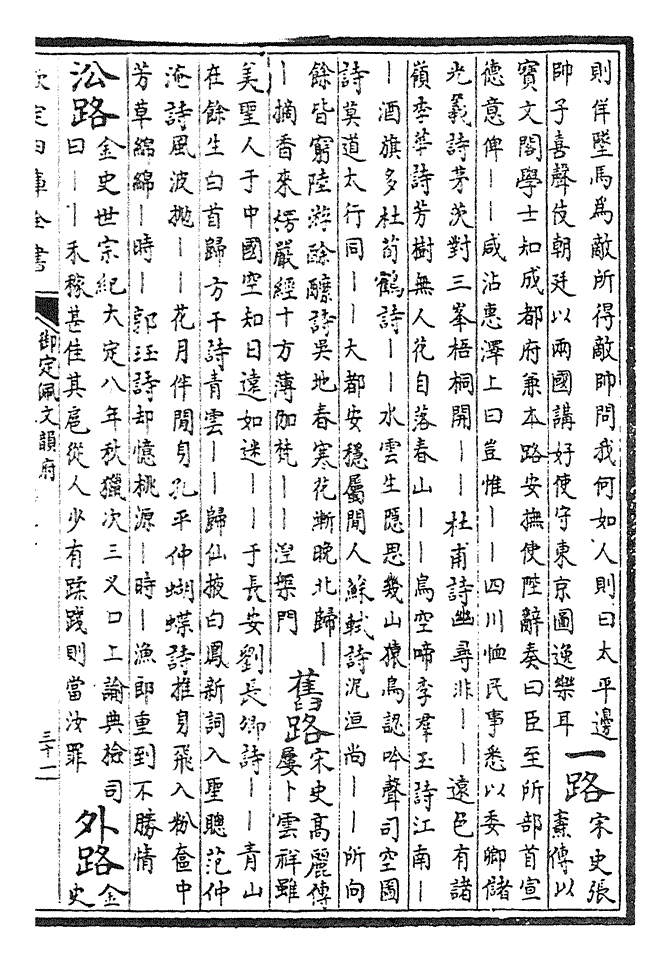 則佯墜馬爲敵所得敵帥問我何如人則曰太平邊
帥子喜聲伎朝廷以兩國講好使守東京圖逸樂耳
一路
宋史張
燾傳以
寶文閣學士知成都府兼本路安撫使陛辭奏曰臣至所部首宣
德意俾——咸沾惠澤上曰豈惟——四川恤民事悉以委卿儲
光羲詩茅茨對三峯梧桐開——杜甫詩幽尋非——遠色有諸
嶺李華詩芳樹無人花自落春山——鳥空啼李羣玉詩江南—
—酒旗多杜荀鶴詩——水雲生隱思幾山猿鳥認吟聲司空圖
詩莫道太行同——大都安穩屬閒人蘇軾詩泥洹尚——所向
餘皆窮陸游酴醾詩吳地春寒花漸晚北歸—
—摘香來楞嚴經十方薄伽梵——湼槃門
舊路
宋史高麗傳
屢卜雲祥雖
美聖人于中國空知日遠如迷——于長安劉長卿詩——青山
在餘生白首歸方干詩青雲——歸仙掖白鳳新詞入聖聰范仲
淹詩風波拋——花月伴閒身孔平仲蝴蝶詩推身飛入粉奩中
芳草綿綿—時—郭珏詩却憶桃源—時—漁郎重到不勝情
㳂路
金史世宗紀大定八年秋獵次三叉口上諭典檢司
曰——禾稼甚佳其扈從人少有蹂踐則當汝罪
外路
金
史
欽定四庫全書
御定佩文韻府
三十一